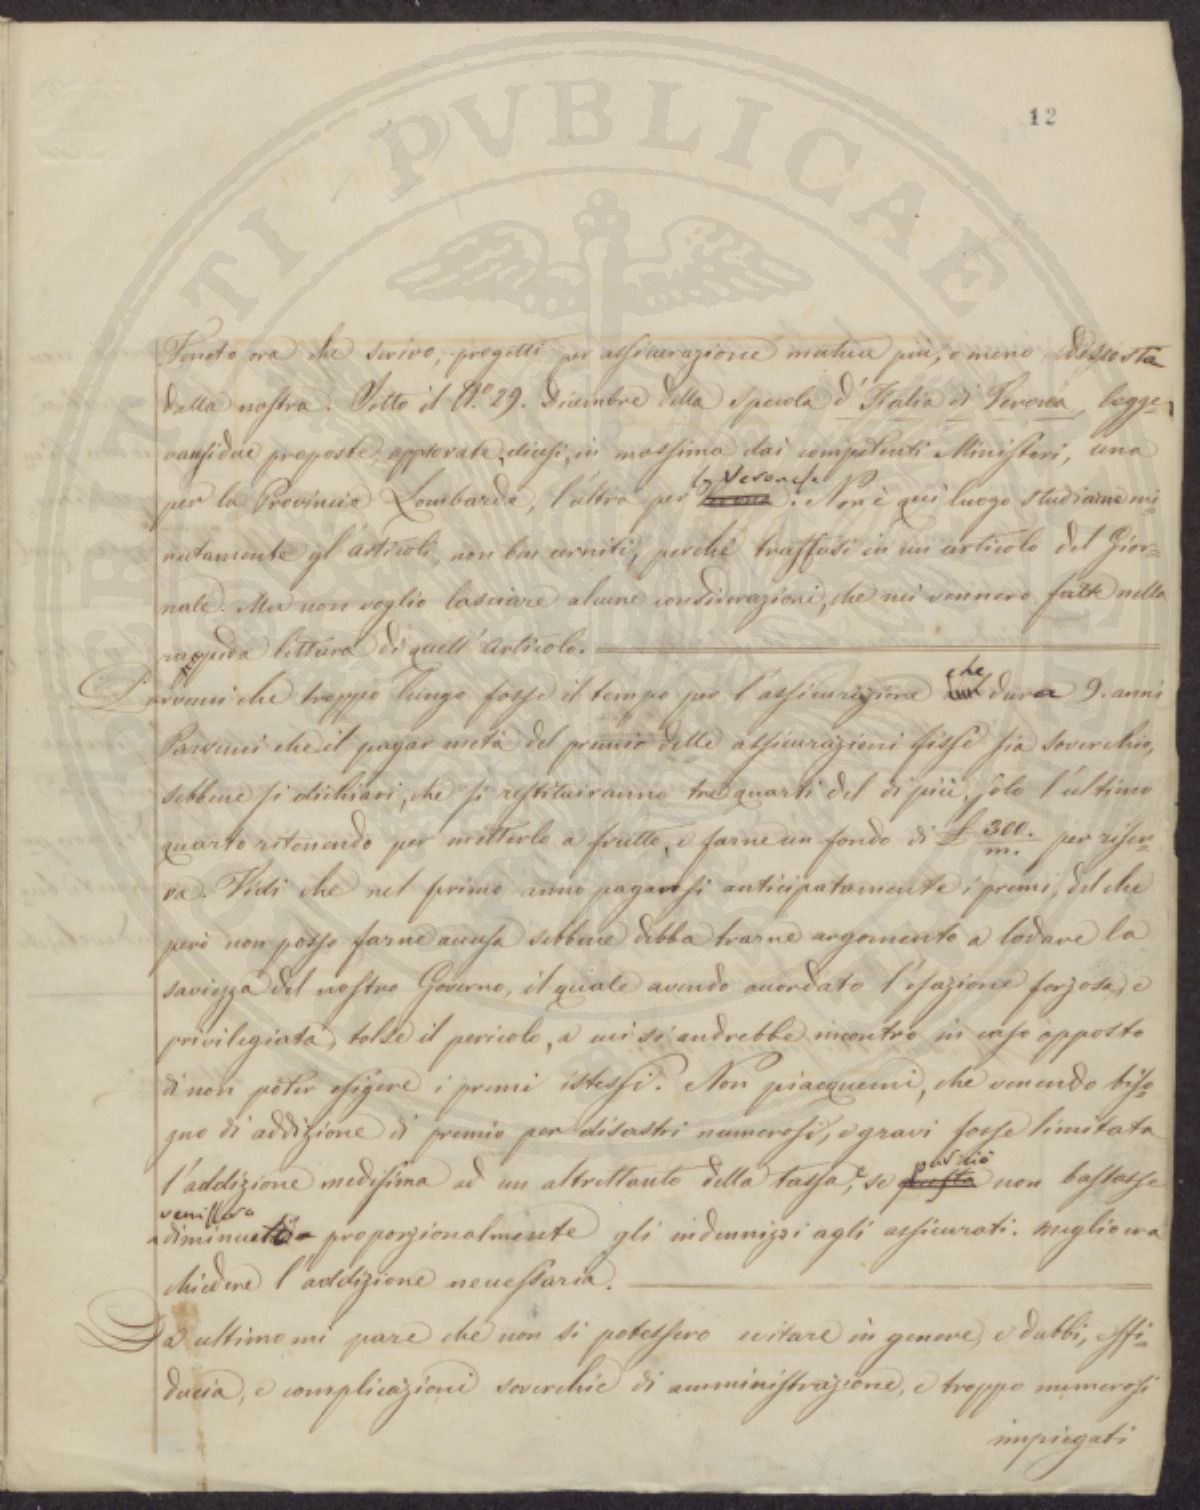 12
Veneto ora che scrivo, progetti per assicurazione mutua più, o meno discosta
dalla nostra. Sotto il N.º 29. Dicembre della specola d'Italia di Verona, legge-
vansi due proposte approvate, dicesi, in massima dai competenti Ministeri, una
per la Provincia Lombarda, l'altra per la Veronese. Non è qui luogo studiarne mi-
nutamente gl'articoli, non ben cerniti, perchè trasfusi in un articolo del Gior-
nale. Ma non voglio lasciare alcune considerazioni, che mi vennero fatte nella
rapida lettura di quell'articolo.
Parvemi che troppo lungo fosse il tempo per l'assicurazione che dura 9. anni
Parvemi che il pagar metà del premio delle assicurazioni fisse sia soverchio,
sebbene si dichiari, che si restituiranno tre quarti del di più, solo l'ultimo
quarto ritenendo per metterlo a frutto, e farne un fondo di £ 300/m. per riser-
va. Vidi che nel primo anno pagansi anticipatamente i premi, del che
però non posso farne accusa sebbene debba trarne argomento a lodare la
saviezza del nostro Governo, il quale avendo accordato l'esazione forzosa, e
privilegiata, tolse il pericolo, a cui si andrebbe incontro in caso opposto
di non poter esigere i premi istessi. Non piacquemi, che venendo biso-
gno di addizione di premio per disastri numerosi, e gravi fosse limitata
l'addizione medesima ad un altrettanto della tassa, e se perciò non bastasse
venissero
diminuiti proporzionalmente gli indennizzi agli assicurati. Meglio era
chiedere l'addizione necessaria.
Da ultimo mi pare che non si potessero evitare in genere, e dubbi, e sfi-
ducia, e complicazioni soverchie di amministrazione, e troppo numerosi
impiegati
PERITI PVBLICAE